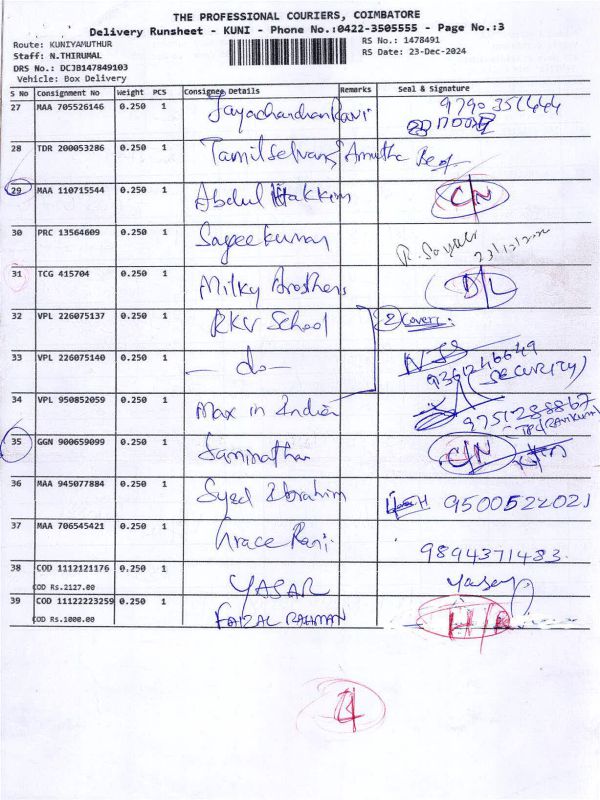 THE PROFESSIONAL COURIERS, COIMBATORE
Delivery Runsheet - KUNI - Phone No.:0422-3505555 - Page No.:3
Route: KUNIYAMUTHUR RS No.: 1478491
Staff: N.THIRUMAL RS Date: 23-Dec-2024
DRS No.: DCJB147849103
Vehicle: Box Delivery
S No Consignment No Weight PCS Consignee Details Remarks Seal & Signature
27 MAA 705526146 0.250 1 Jayachandran Ravi
28 TDR 200053286 0.250 1 Tamilselvan Amutha
29 MAA 110715544 0.250 1 Abdul Hakkim C/N
30 PRC 13564609 0.250 1 Sayeekumar
31 TCG 415704 0.250 1 Milky Brothers D/L
32 VPL 226075137 0.250 1 RKV School 2 Covers.
33 VPL 226075140 0.250 1 — do — 9361246649
(SECURITY)
34 VPL 950852059 0.250 1 Max in India 9751288867
35 GGN 900659099 0.250 1 Saminathan C/N
36 MAA 945077884 0.250 1 Syed Ibrahim 9500522021
37 MAA 706545421 0.250 1 Grace Rani. 9894371483.
38 COD 1112121176 0.250 1 YASAR Yasar
COD Rs.2127.00
39 COD 11122223259 0.250 1 FAIZAL RAHMAN
COD Rs.1000.00
4